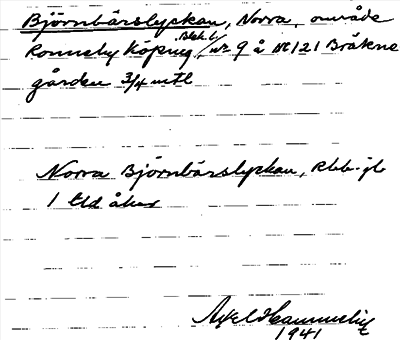 Björnbärslyckan, Norra, område
Ronneby Köping, Blek. l. nr 9 å No 121 Bräkne
gården 3/4 mtl
Norra Björnbärslyckan, Rbb-jb
1 tld åker
Axel
1941